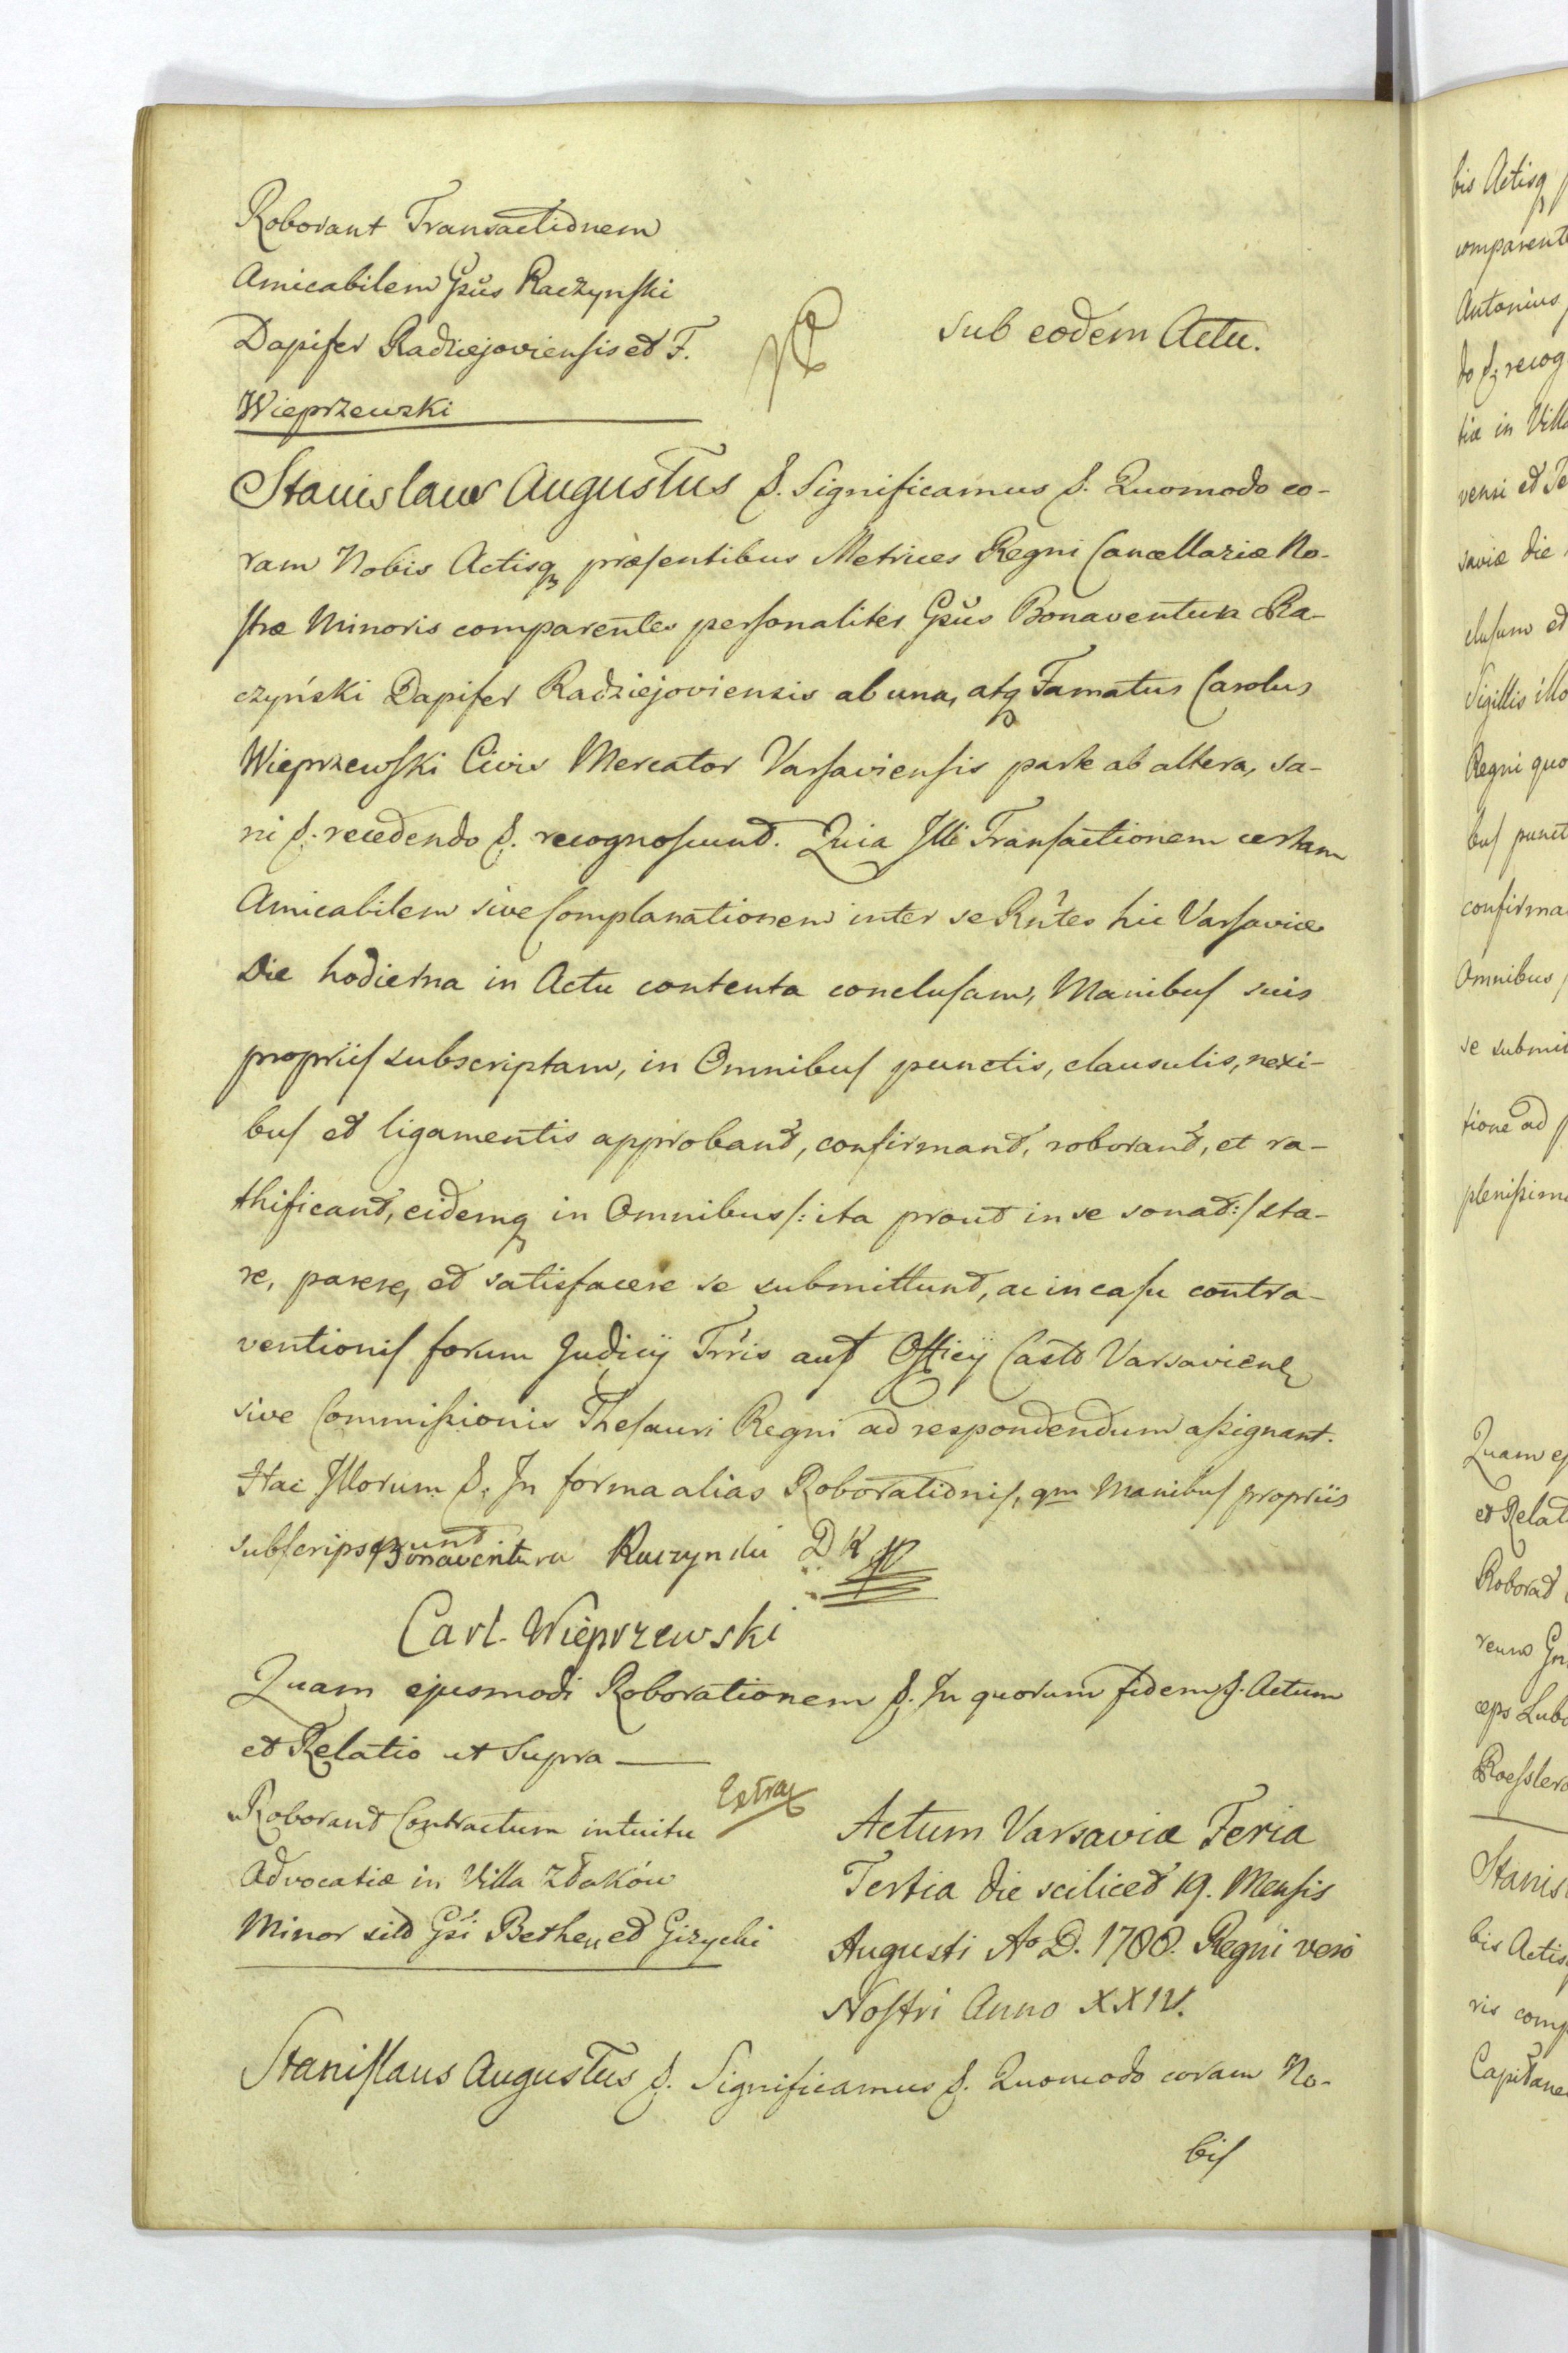 Roborant Transactionem
Amicabilem Gsūs Raczynſki
Dapifer Radziejovienſis et F.
Wieprzewski
Sub eodem Actu.
Stanislaus Augustus &. Significamus &. Quomodo co-
ram Nobis Actisq præſentibus Metrices Regni Cancellariæ No-
ſtræ Minoris comparentes perſonaliter Gsūs Bonaventura Ra-
czyński Dapifer Radziejoviensis ab una, atq Famatus Carolus
Wieprzewſki Civis Mercator Varſavienſis parte ab altera, sa-
ni &. recedendo &. recognoſcunt. Quia Illi Tranſactionem certam
Amicabilem sive Complanationem inter se Rñtes hic Varſaviæ
Die hodierna in Actu contenta concluſam, Manibuſ suis
propriiſ subscriptam, in Omnibuſ punctis, clausulis, nexi-
buſ et ligamentis approbant, confirmant, roborant, et ra-
thificant, eidemq in Omnibus /: ita prout in se sonat :/ sta-
re, parere, et satisfacere se submittunt, ac in caſu contra-
ventioniſ forum Judicij Trr̃is aut Officij Castr Varsavienѕ
sive Commiſsionis Theſauri Regni ad respondendum aſsignant.
Hac Illorum &. In forma alias Roborationiſ, qm Manibuſ propriis
subſcripserunt Bonaventura Raczynski D R
Carl. Wieprzewski
Quam ejusmodi Roborationem &. In quorum fidem &. Actum
et Relatio ut Supra
Extrax
Roborant Contractum intuitu
Advocatiæ in Villa Złaków
Minor sito Gsi Bethen et Gizycki
Actum Varsaviæ Feria
Tertia die scilicet 19. Menſis
Augusti Aº D. 1788. Regni vero
Noſtri Anno XXIV.
Staniſlaus Augustus &. Significamus &. Quomodo coram No-
biſ
bis Actisq
comparente
Antonius
do &; recog
tiæ in Villa
vensi et Te
saviæ die
cluſum et
Sigillis illo
Regni quo
buſ punct
confirma
Omnibus
se submit
tione ad p
pleniſsime
Quam ej
et Relat
Roborat
renus Gn
ceps Lubo
Roeſslero
Stanis
bis Actis
ris comp
Capitane